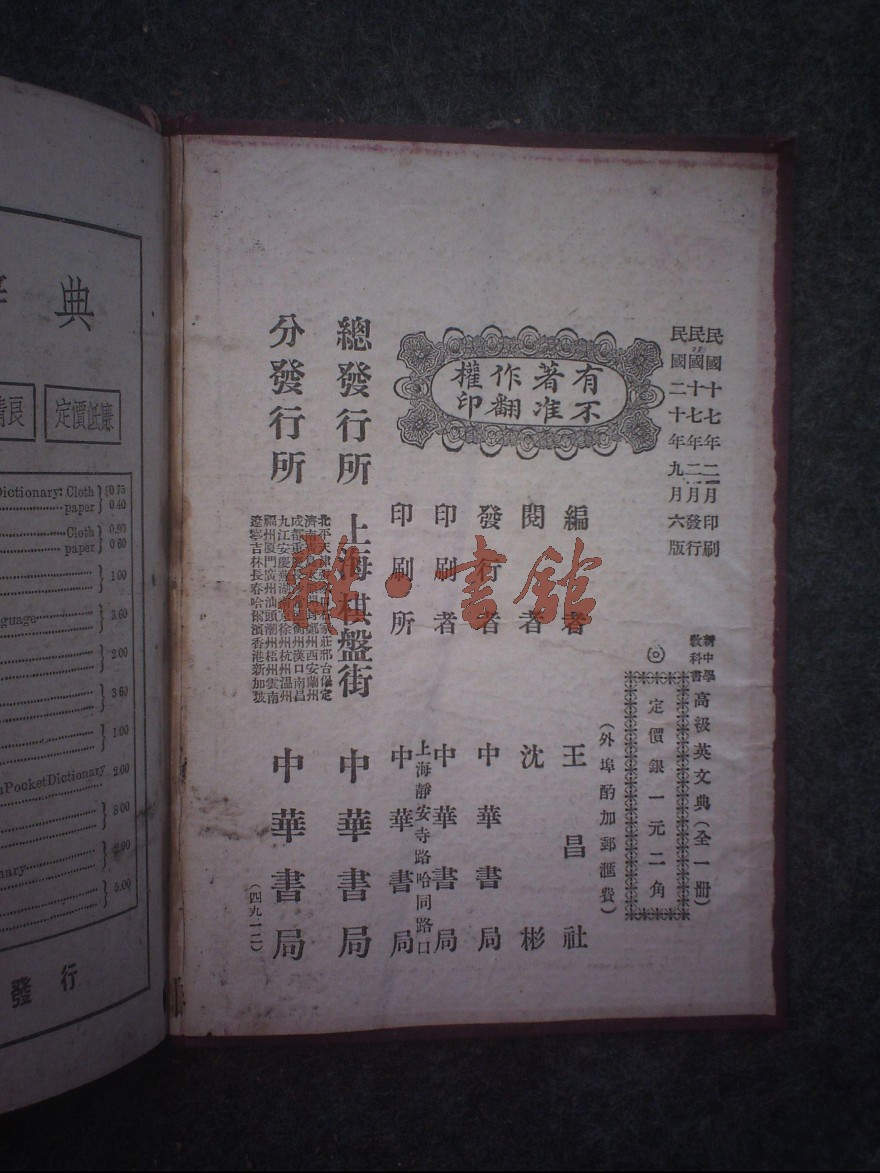 民國十七年二月印刷
民國十七年二月發行
民國二十年九月六版
新中學
教科書
高級英文典(全一册)
定價銀一元二角
(外埠酌加郵滙費)
有著作權
不准翻印
編者 王昌社
閱者 沈彬
發行者 中華書局
印刷者 中華書局
上海靜安寺路哈同路口
印刷所 中華書局
總發行所 上海棋盤街 中華書局
分發行所
州西安蘭州
衡州漢口南昌
九江安慶 徐州杭州溫州
福州廈門廣州汕頭潮州梧州雲南
遼寧吉林長春哈爾濱香港新加坡
中華書局
(四九一二)
書館
典
定價低廉
良
Dictionary: Cloth 0.75
paper 0.40
Cloth 0.90
paper 0 60
1 00
guage 3.60
2.00
3 60
1.00
PocketDictionary 2.00
8 00
nary 2.00
5.00
發行